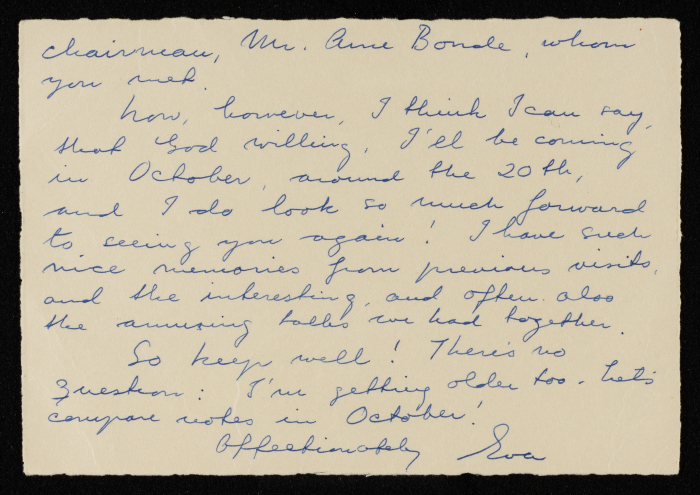 chairman, Mr. Arne Bonde, whom
you met.
Now, however, I think I can say,
that God willing, I'll be coming
in October, around the 20th,
and I do look so much forward
to seeing you again! I have such
nice memories from previous visits,
and the interesting, and often also
the amusing talks we had together.
So keep well! There's no
question: I'm getting older too. Let's
compare notes in October!
Affectionately Eva